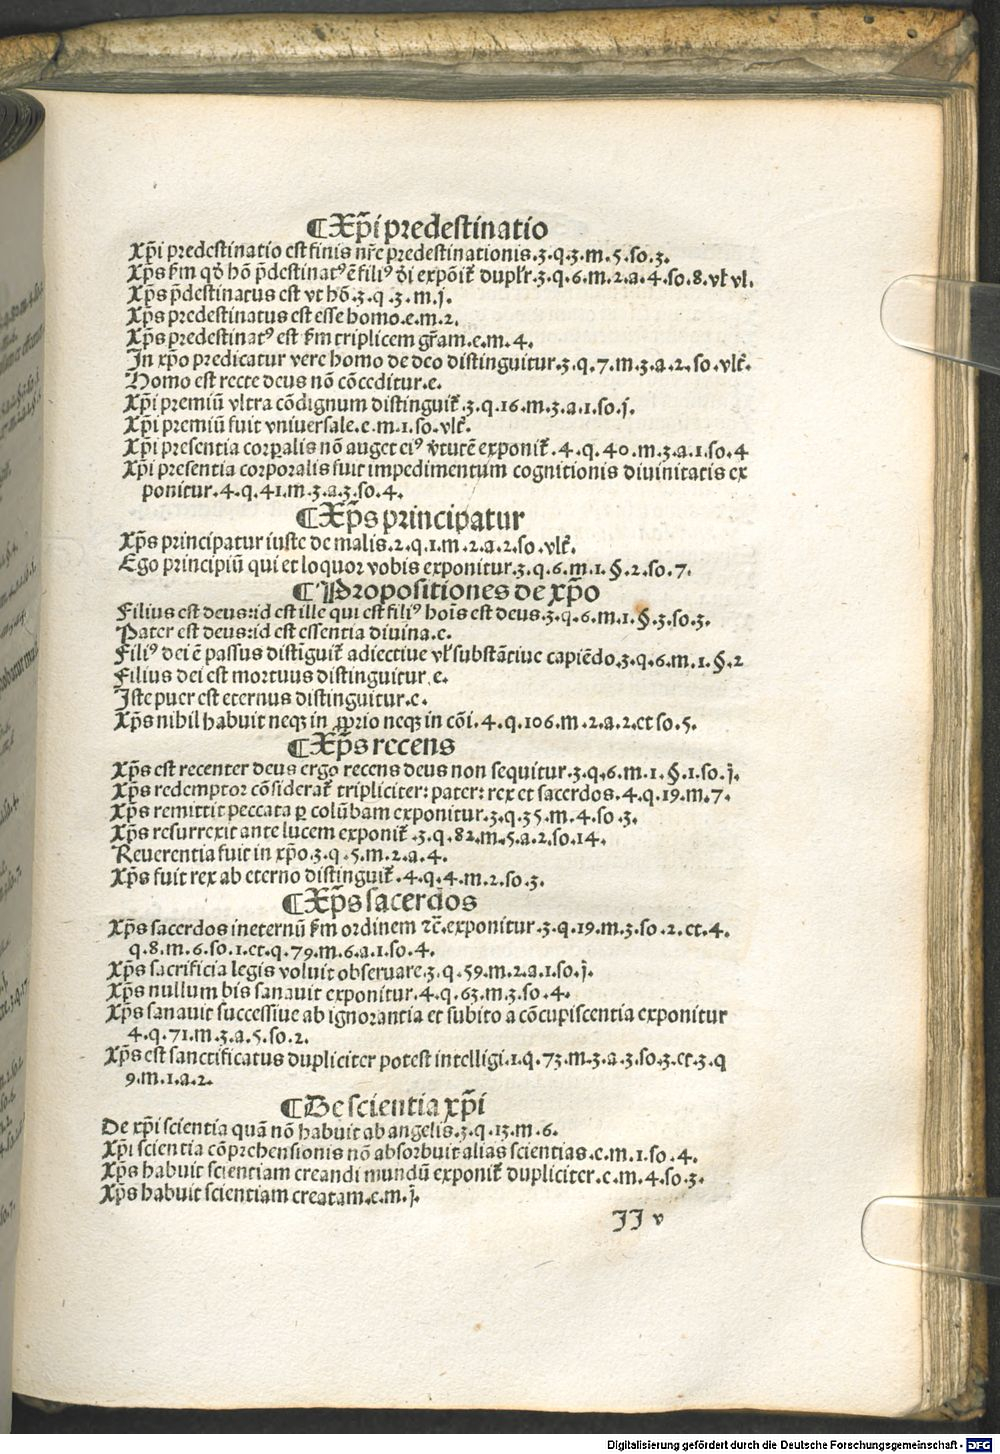 ¶Xp̄i predestinatio
Xp̄i predestinatio est finis nr̄e predestinationis.3.q.3.m.5.so.3.
Xp̄s ẜm qđ hō p̄destinatꝰ ē filiꝰ đi expōiť duplr̄.3.q.6.m.2.a.4.so.8.vł vl.
Xp̄s p̄destinatus est vt hō.3.q.3.m.j.
Xp̄s predestinatus est esse homo.e.m.2.
Xp̄s predestinatꝰ est ẜm triplicem gr̄am.e.m.4.
In xp̄o predicatur vere homo de deo distinguitur.3.q.7.m.3.a.2.so.vlť.
Homo est recte deus nō cōceditur.e.
Xp̄i premiū vltra cōdignum distinguiť.3.q.16.m.3.a.1.so.j.
Xp̄i premiū fuit vniuersale.e.m.1.so.vlť.
Xp̄i presentia corꝑalis nō auget eiꝰ v̓tutē exponiť.4.q.40.m.3.a.1.so.4
Xp̄i presentia corporalis fuit impedimentum cognitionis diuinitatis ex
ponitur.4.q.41.m.3.a.3.so.4.
¶Xp̄s principatur
Xp̄s principatur iuste de malis.2.q.1.m.2.a.2.so.vlť.
Ego principiū qui et loquor vobis exponitur.3.q.6.m.1.§.2.so.7.
¶Propositiones de xp̄o
Filius est deus:id est ille qui est filiꝰ hoīs est deus.3.q.6.m.1.§.3.so.3.
Pater est deus:id est essentia diuina.e.
Filiꝰ dei ē passus distīguiť adiectiue vł substātiue capiēdo.3.q.6.m.1.§.2
Filius dei est mortuus distinguitur.e.
Iste puer est eternus distinguitur.e.
Xp̄s nihil habuit neqꝫ in ꝓprio neqꝫ in cōi.4.q.106.m.2.a.2.et so.5.
¶Xp̄s recens
Xp̄s est recenter deus ergo recens deus non sequitur.3.q.6.m.1.§.1.so.j.
Xp̄s redemptor cōsiderať tripliciter:pater:rex et sacerdos.4.q.19.m.7.
Xp̄s remittit peccata ꝑ colūbam exponitur.3.q.35.m.4.so.3.
Xp̄s resurrexit ante lucem exponiť.3.q.82.m.5.a.2.so.14.
Reuerentia fuit in xp̄o.3.q.5.m.2.a.4.
Xp̄s fuit rex ab eterno distinguiť.4.q.4.m.2.so.3.
¶Xp̄s sacerdos
Xp̄s sacerdos ineternū ẜm ordinem ⁊c̄.exponitur.3.q.19.m.3.so.2.et.4.
q.8.m.6.so.1.et.q.79.m.6.a.1.so.4.
Xp̄s sacrificia legis voluit obseruare.3.q.59.m.2.a.1.so.j.
Xp̄s nullum bis sanauit exponitur.4.q.63.m.3.so.4.
Xp̄s sanauit successiue ab ignorantia et subito a cōcupiscentia exponitur
4.q.71.m.3.a.5.so.2.
Xp̄s est sanctificatus dupliciter potest intelligi.1.q.73.m.3.a.3.so.3.et.3.q
9.m.1.a.2.
¶De scientia xp̄i
De xp̄i scientia quā nō habuit ab angelis.3.q.13.m.6.
Xp̄i scientia cōprehensionis nō absorbuit alias scientias.e.m.1.so.4.
Xp̄s habuit scientiam creandi mundū exponiť dupliciter.e.m.4.so.3.
Xp̄s habuit scientiam creatam.e.m.j.
JJ v
Digitalisierung gefördert durch die Deutsche Forschungsgemeinschaft - DFG